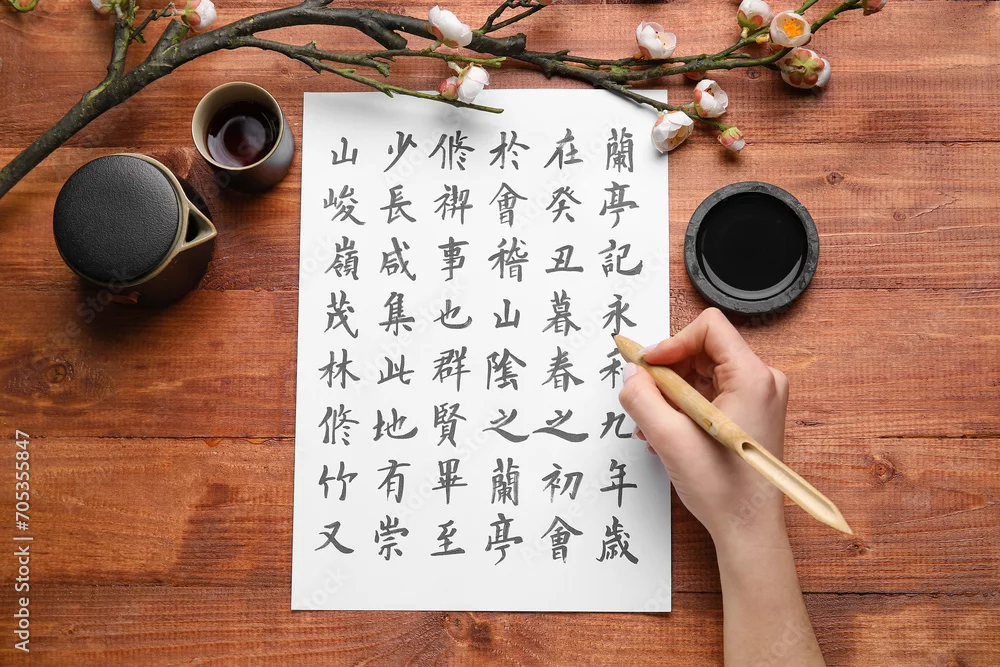 蘭亭記永和九年歲
在癸丑暮春之初會
於會稽山陰之蘭亭
修禊事也群賢畢至
少長咸集此地有崇
山峻嶺茂林修竹又
Adobe Stock | #705355847